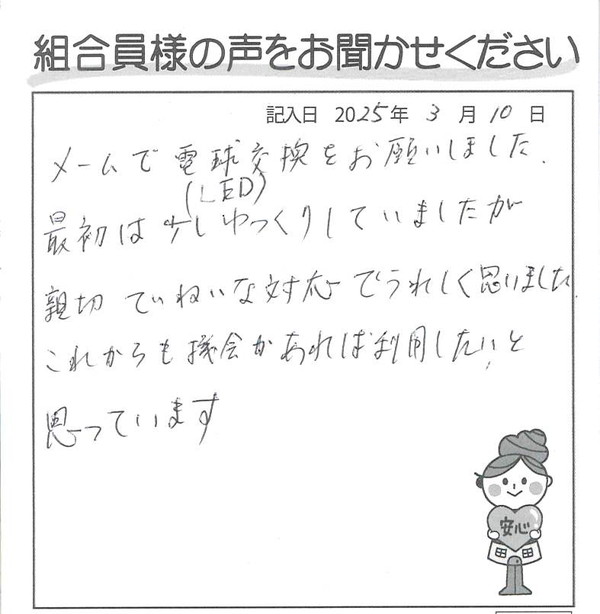 組合員様の声をお聞かせください
記入日 2025年 3 月 10 日
メームで電球交換をお願いしました.
(LED)
最初は少しゆっくりしていましたが
親切 ていねいな対応でうれしく思いました.
これからも機会があれば利用したいと
思っています
安心